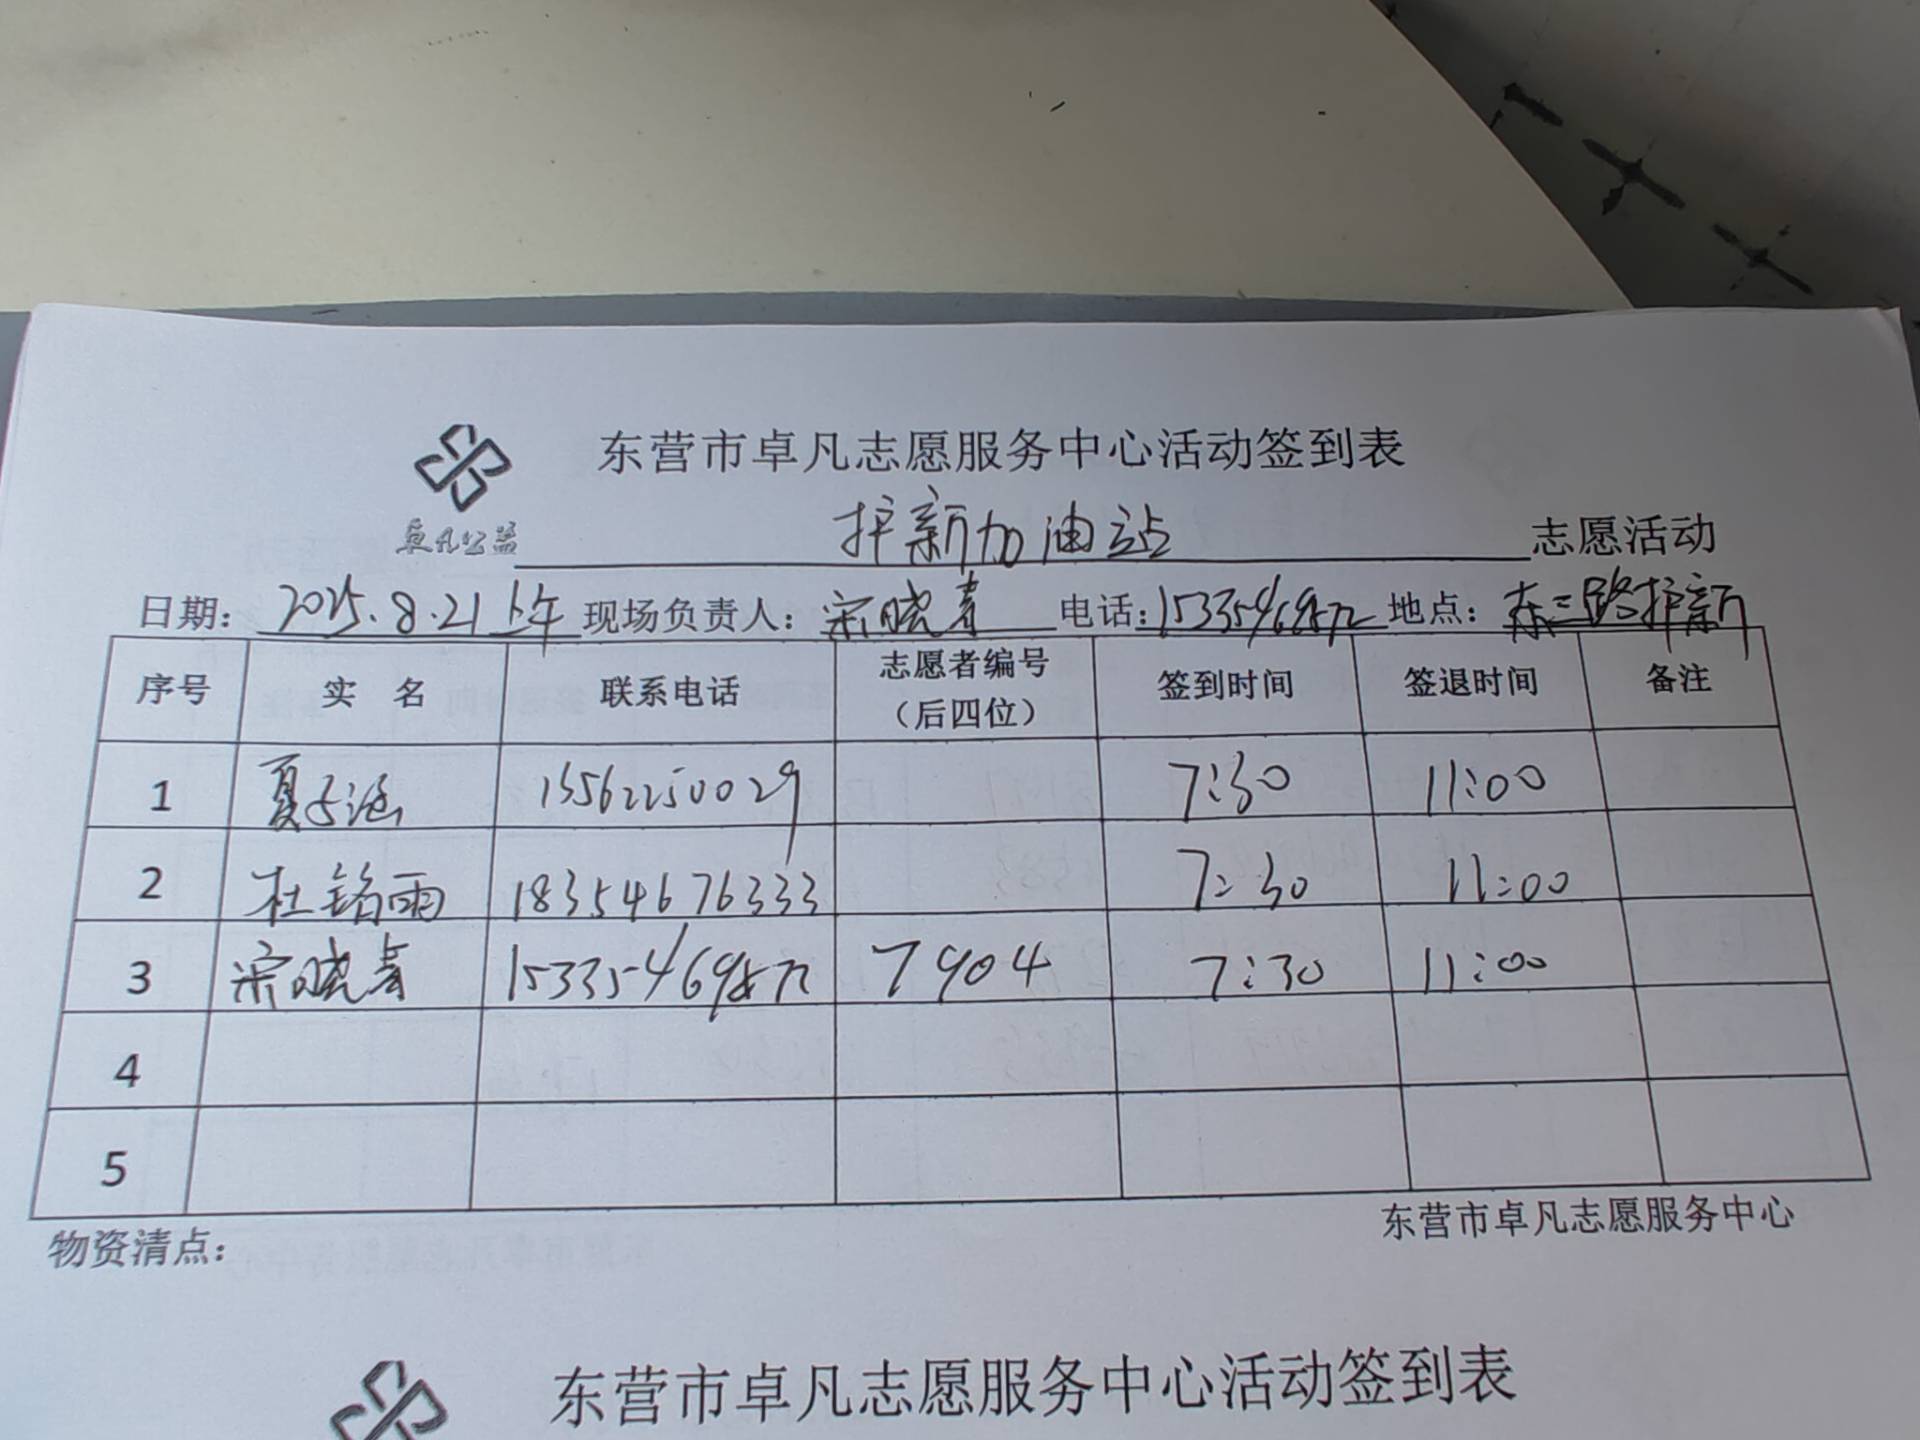 东营市卓凡志愿服务中心活动签到表
卓凡公益 护新加油站 志愿活动
日期: 2025.8.21上午 现场负责人: 宋晓青 电话: 地点: 东三路护新
序号 实 名 联系电话 志愿者编号（后四位） 签到时间 签退时间 备注
1 夏子涵 13562250029 7:30 11:00
2 杜铭雨 18354676333 7:30 11:00
3 宋晓青 7904 7:30 11:00
4
5
物资清点: 东营市卓凡志愿服务中心
东营市卓凡志愿服务中心活动签到表